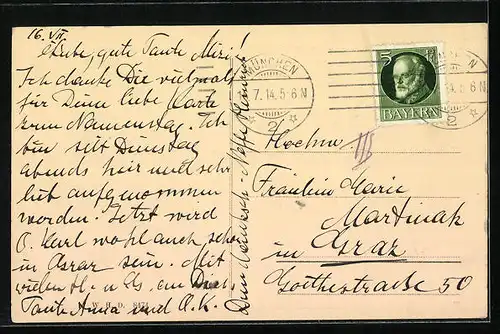 16. VII.
Liebe, gute Tante Mizi!
Ich danke Dir vielmals
für Deine liebe Karte
zum Namenstag. Ich
bin seit Dienstag
abends hier und sehr
lieb aufgenommen
worden. Jetzt wird
O. Karl wohl auch schon
in Graz sein. Mit
vielen H. u. Gr. an Dich,
Tante Anna und O. K.
Dein Neffe Heinrich
W. H. D. 8474
MÜNCHEN
7.14.5-6N
2
5
BAYERN
Hochw.
Fräulein Marie
Martinak
in Graz
Goethestraße 50